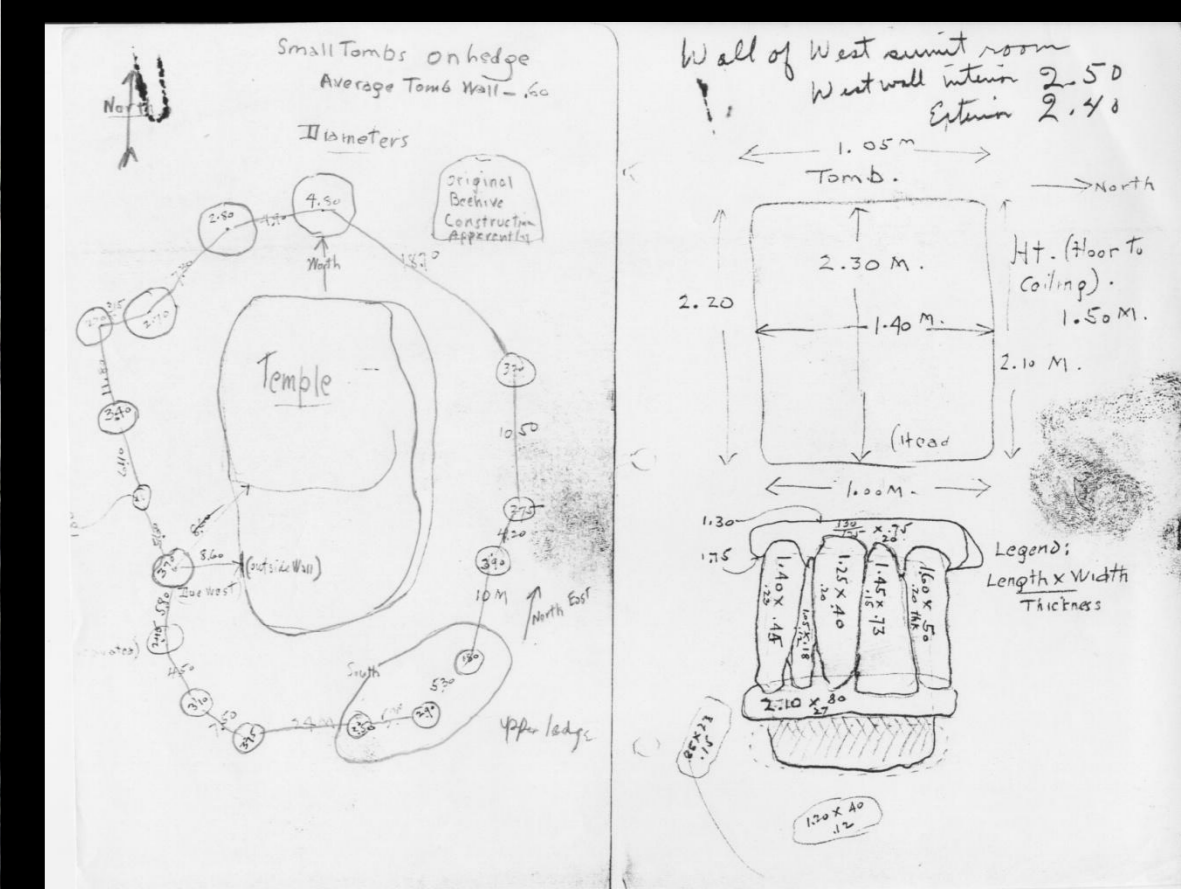 Small Tombs on hedge
Average Tomb Wall - .60
North
Diameters
Original
Beehive
Construction
Apparently
4.80
2.80
North
18.70
2.70
3.15
2.70
Temple
11.80
3.40
3.30
10.50
2.75
4.20
3.90
10 M
North East
8.60
(outside Wall)
Due West
5.80
2.45
4.50
South
1.80
5.30
3.10
7.50
3.95
24 M
2.90
upper ledge
Wall of West summit room
West wall interior 2.50
Exterior 2.40
1.05 M
Tomb.
North
2.30 M.
Ht. (Floor to
Ceiling).
1.50 M.
2.20
1.40 M.
2.10 M.
(Head
1.00 M.
1.30
1.75
1.40 x .45
.23
1.05 x .18
.12
1.25 x 40
.20
1.45 x .73
.15
1.60 x .50
.20 thk
2.10 x 80
27
Legend:
Length x Width
Thickness
1.20 x 40
.12